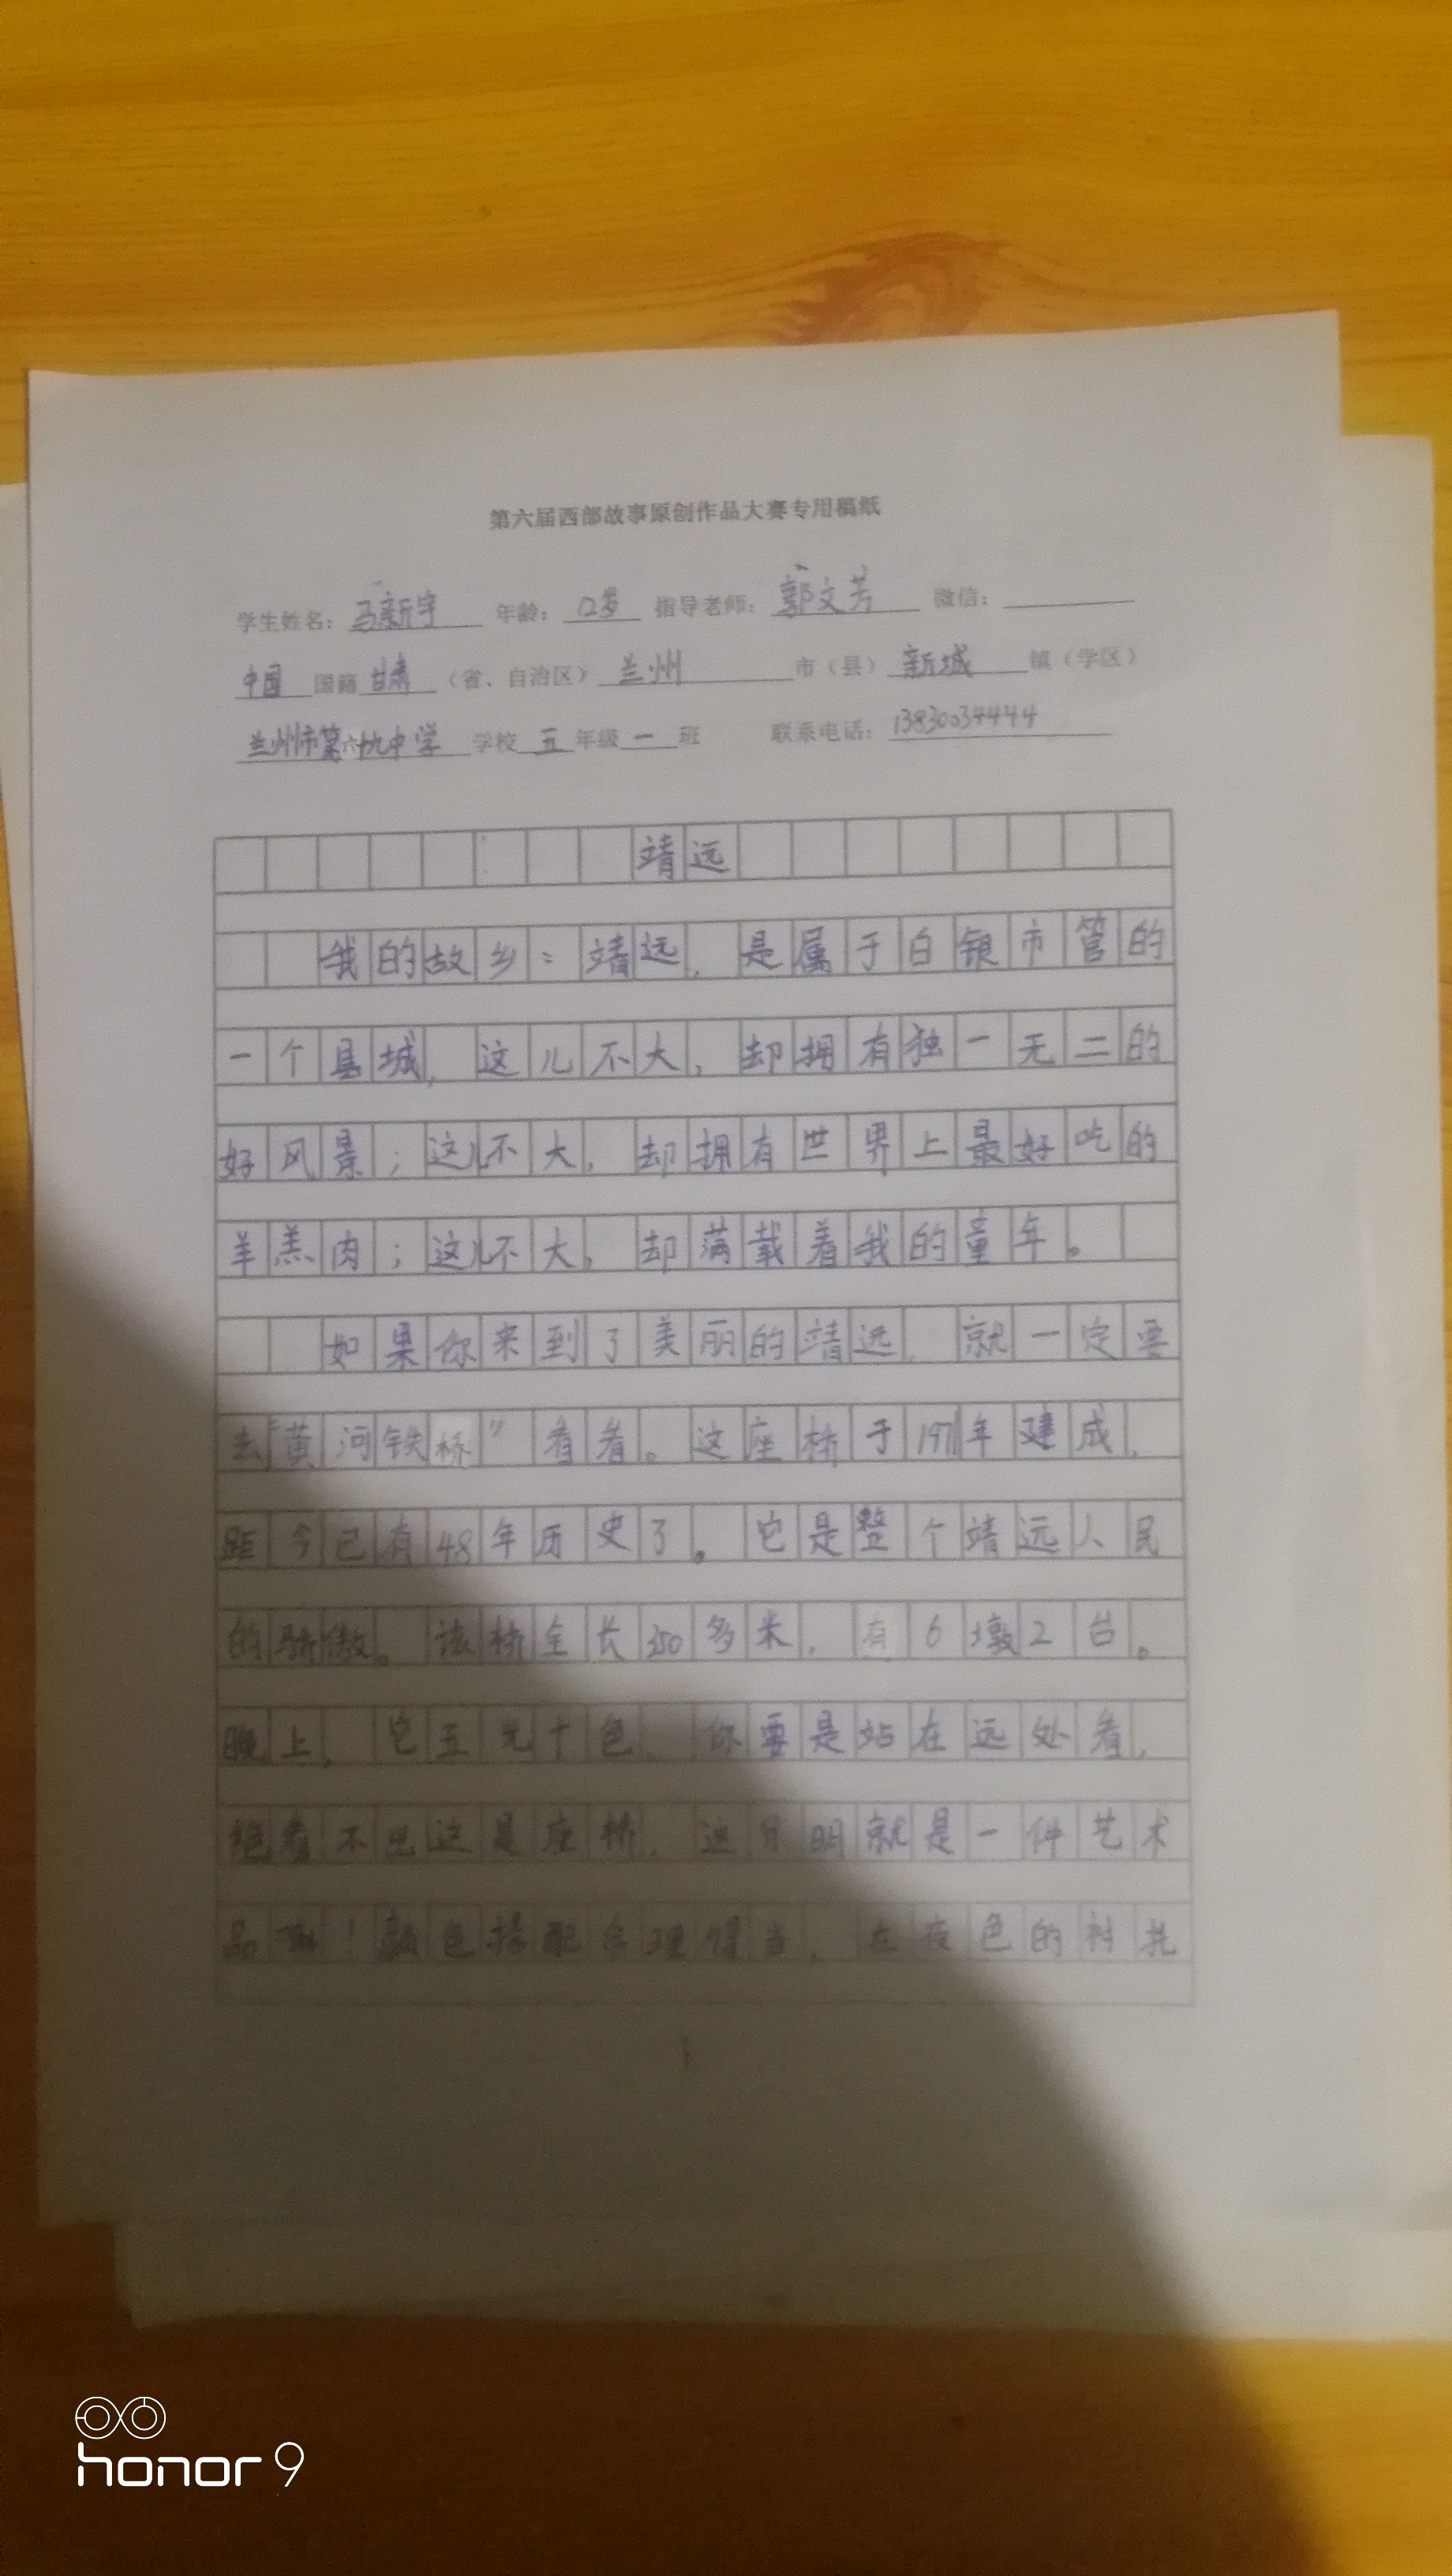 第六届西部故事原创作品大赛专用稿纸
学生姓名：马新宇 年龄：12岁 指导老师：郭文芳 微信：
中国 国籍 甘肃 （省、自治区） 兰州 市（县） 新城 镇（学区）
兰州市第六十九中学 学校 五 年级 一 班 联系电话：13830034444
靖远
我的故乡：靖远，是属于白银市管的
一个县城，这儿不大，却拥有独一无二的
好风景；这儿不大，却拥有世界上最好吃的
羊羔肉；这儿不大，却满载着我的童年。
如果你来到了美丽的靖远，就一定要
去“黄河铁桥”看看。这座桥于1971年建成，
距今已有48年历史了。它是整个靖远人民
的骄傲。该桥全长350多米，有6墩2台。
晚上，它五光十色，你要是站在远处看，
绝看不出这是座桥，这分明就是一件艺术
品嘛！颜色搭配合理得当，在夜色的衬托
1
honor 9